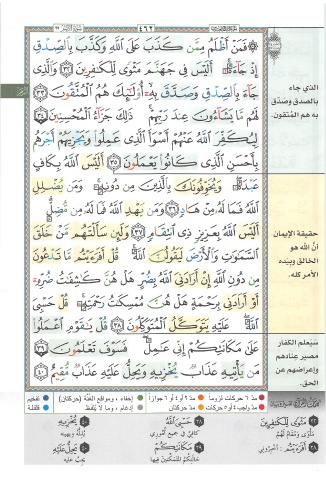 ٤٦٢
فَمَنْ أَظْلَمُ مِمَّن كَذَبَ عَلَى ٱللَّهِ وَكَذَّبَ بِٱلصِّدْقِ
إِذْ جَآءَهُۥٓ أَلَيْسَ فِى جَهَنَّمَ مَثْوًى لِّلْكَٰفِرِينَ ٣٢ وَٱلَّذِى
جَآءَ بِٱلصِّدْقِ وَصَدَّقَ بِهِۦٓ أُو۟لَٰٓئِكَ هُمُ ٱلْمُتَّقُونَ ٣٣
لَهُم مَّا يَشَآءُونَ عِندَ رَبِّهِمْ ذَٰلِكَ جَزَآءُ ٱلْمُحْسِنِينَ ٣٤
لِيُكَفِّرَ ٱللَّهُ عَنْهُمْ أَسْوَأَ ٱلَّذِى عَمِلُوا۟ وَيَجْزِيَهُمْ أَجْرَهُم
بِأَحْسَنِ ٱلَّذِى كَانُوا۟ يَعْمَلُونَ ٣٥ أَلَيْسَ ٱللَّهُ بِكَافٍ
عَبْدَهُۥ وَيُخَوِّفُونَكَ بِٱلَّذِينَ مِن دُونِهِۦ وَمَن يُضْلِلِ
ٱللَّهُ فَمَا لَهُۥ مِنْ هَادٍ ٣٦ وَمَن يَهْدِ ٱللَّهُ فَمَا لَهُۥ مِن مُّضِلٍّ
أَلَيْسَ ٱللَّهُ بِعَزِيزٍ ذِى ٱنتِقَامٍ ٣٧ وَلَئِن سَأَلْتَهُم مَّنْ خَلَقَ
ٱلسَّمَٰوَٰتِ وَٱلْأَرْضَ لَيَقُولُنَّ ٱللَّهُ قُلْ أَفَرَءَيْتُم مَّا تَدْعُونَ
مِن دُونِ ٱللَّهِ إِنْ أَرَادَنِىَ ٱللَّهُ بِضُرٍّ هَلْ هُنَّ كَٰشِفَٰتُ ضُرِّهِۦٓ
أَوْ أَرَادَنِى بِرَحْمَةٍ هَلْ هُنَّ مُمْسِكَٰتُ رَحْمَتِهِۦ قُلْ حَسْبِىَ
ٱللَّهُ عَلَيْهِ يَتَوَكَّلُ ٱلْمُتَوَكِّلُونَ ٣٨ قُلْ يَٰقَوْمِ ٱعْمَلُوا۟
عَلَىٰ مَكَانَتِكُمْ إِنِّى عَٰمِلٌ فَسَوْفَ تَعْلَمُونَ ٣٩
مَن يَأْتِيهِ عَذَابٌ يُخْزِيهِ وَيَحِلُّ عَلَيْهِ عَذَابٌ مُّقِيمٌ ٤٠
الذي جاء
بالصدق وصدّق
به هم المتقون.
حقيقة الإيمان
أنّ الله هو
الخالق وبيده
الأمر كله.
سيعلم الكفار
مصير عنادهم
وإعراضهم عن
الحق.
مدّ ٦ حركات لزوماً
مدّ ٢ أو ٤ أو ٦ جوازاً
إخفاء، ومواقع الغُنَّة (حركتان)
تفخيم
مدّ واجب ٤ أو ٥ حركات
مدّ حركتان
إدغام، وما لا يُلفَظ
قلقلة
٣٢ مَثْوًى لِّلْكَٰفِرِينَ
٣٨ أَفَرَءَيْتُم
٣٨ حَسْبِىَ ٱللَّهُ
٣٩ مَكَانَتِكُمْ
٤٠ يُخْزِيهِ
٤٠ وَيَحِلُّ عَلَيْهِ